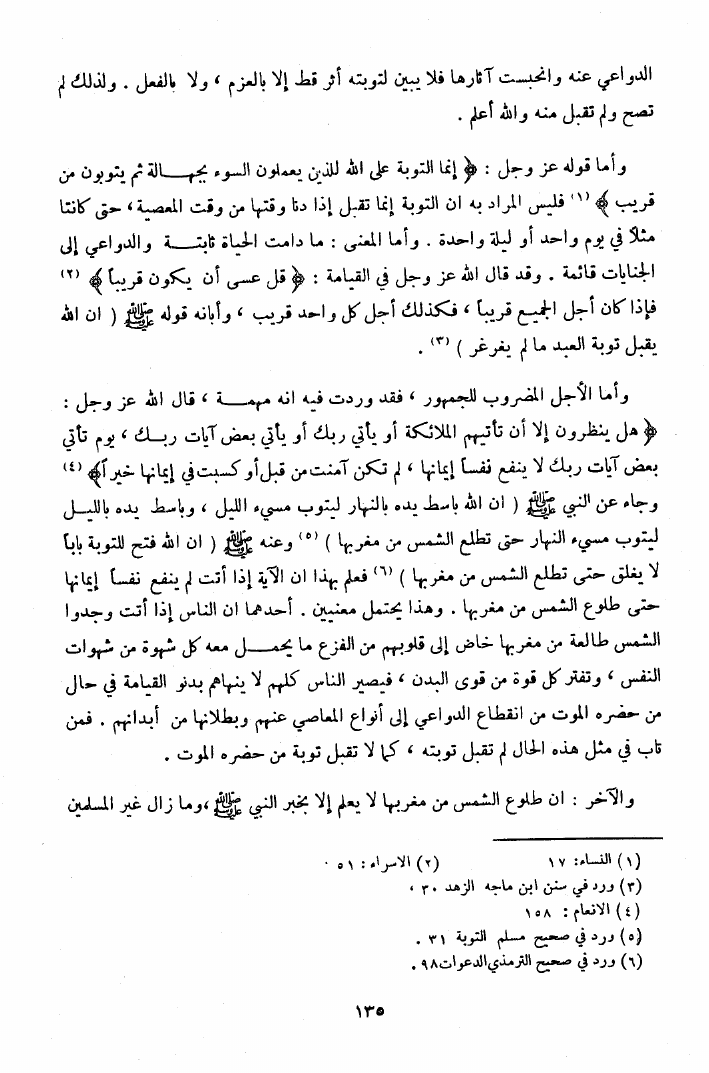 الدواعي عنه وانحبست آثارها فلا يبين لتوبته أثر قط إلا بالعزم ، ولا بالفعل . ولذلك لم
تصح ولم تقبل منه والله أعلم .
وأما قوله عز وجل : ﴿ إنما التوبة على الله للذين يعملون السوء بجهـــالة ثم يتوبون من
قريب ﴾ (١) فليس المراد به ان التوبة إنما تقبل إذا دنا وقتها من وقت المعصية ، حتى كانتا
مثلاً في يوم واحد أو ليلة واحدة . وأما المعنى : ما دامت الحياة ثابتـــة والدواعي إلى
الجنايات قائمة . وقد قال الله عز وجل في القيامة : ﴿ قل عسى أن يكون قريباً ﴾ (٢)
فإذا كان أجل الجميع قريباً ، فكذلك أجل كل واحد قريب ، وأبانه قوله ﷺ ( ان الله
يقبل توبة العبد ما لم يغرغر ) (٣) .
وأما الأجل المضروب للجمهور ، فقد وردت فيه انه مهمـــة ، قال الله عز وجل :
﴿ هل ينظرون إلا أن تأتيهم الملائكة أو يأتي ربك أو يأتي بعض آيات ربــك ، يوم تأتي
بعض آيات ربك لا ينفع نفساً إيمانها ، لم تكن آمنت من قبل أو كسبت في إيمانها خيراً ﴾ (٤)
وجاء عن النبي ﷺ ( ان الله باسط يده بالنهار ليتوب مسيء الليل ، وباسط يده بالليــل
ليتوب مسيء النهار حتى تطلع الشمس من مغربها ) (٥) وعنه ﷺ ( ان الله فتح للتوبة باباً
لا يغلق حتى تطلع الشمس من مغربها ) (٦) فعلم بهذا ان الآية إذا أتت لم ينفع نفساً إيمانها
حتى طلوع الشمس من مغربها . وهذا يحتمل معنيين . أحدهما ان الناس إذا أتت وجدوا
الشمس طالعة من مغربها خاض إلى قلوبهم من الفزع ما يحمـــل معه كل شهوة من شهوات
النفس ، وتفتر كل قوة من قوى البدن ، فيصير الناس كلهم لا ينهاهم بدنو القيامة في حال
من حضره الموت من انقطاع الدواعي إلى أنواع المعاصي عنهم وبطلانها من أبدانهم . فمن
تاب في مثل هذه الحال لم تقبل توبته ، كما لا تقبل توبة من حضره الموت .
والآخر : ان طلوع الشمس من مغربها لا يعلم إلا بخبر النبي ﷺ ،وما زال غير المسلمين
(١) النساء: ١٧ (٢) الاسراء: ٥١ .
(٣) ورد في سنن ابن ماجه الزهد ٣٠ ،
(٤) الانعام: ١٥٨
(٥) ورد في صحيح مسلم التوبة ٣١ .
(٦) ورد في صحيح الترمذي الدعوات ٩٨ .
١٣٥